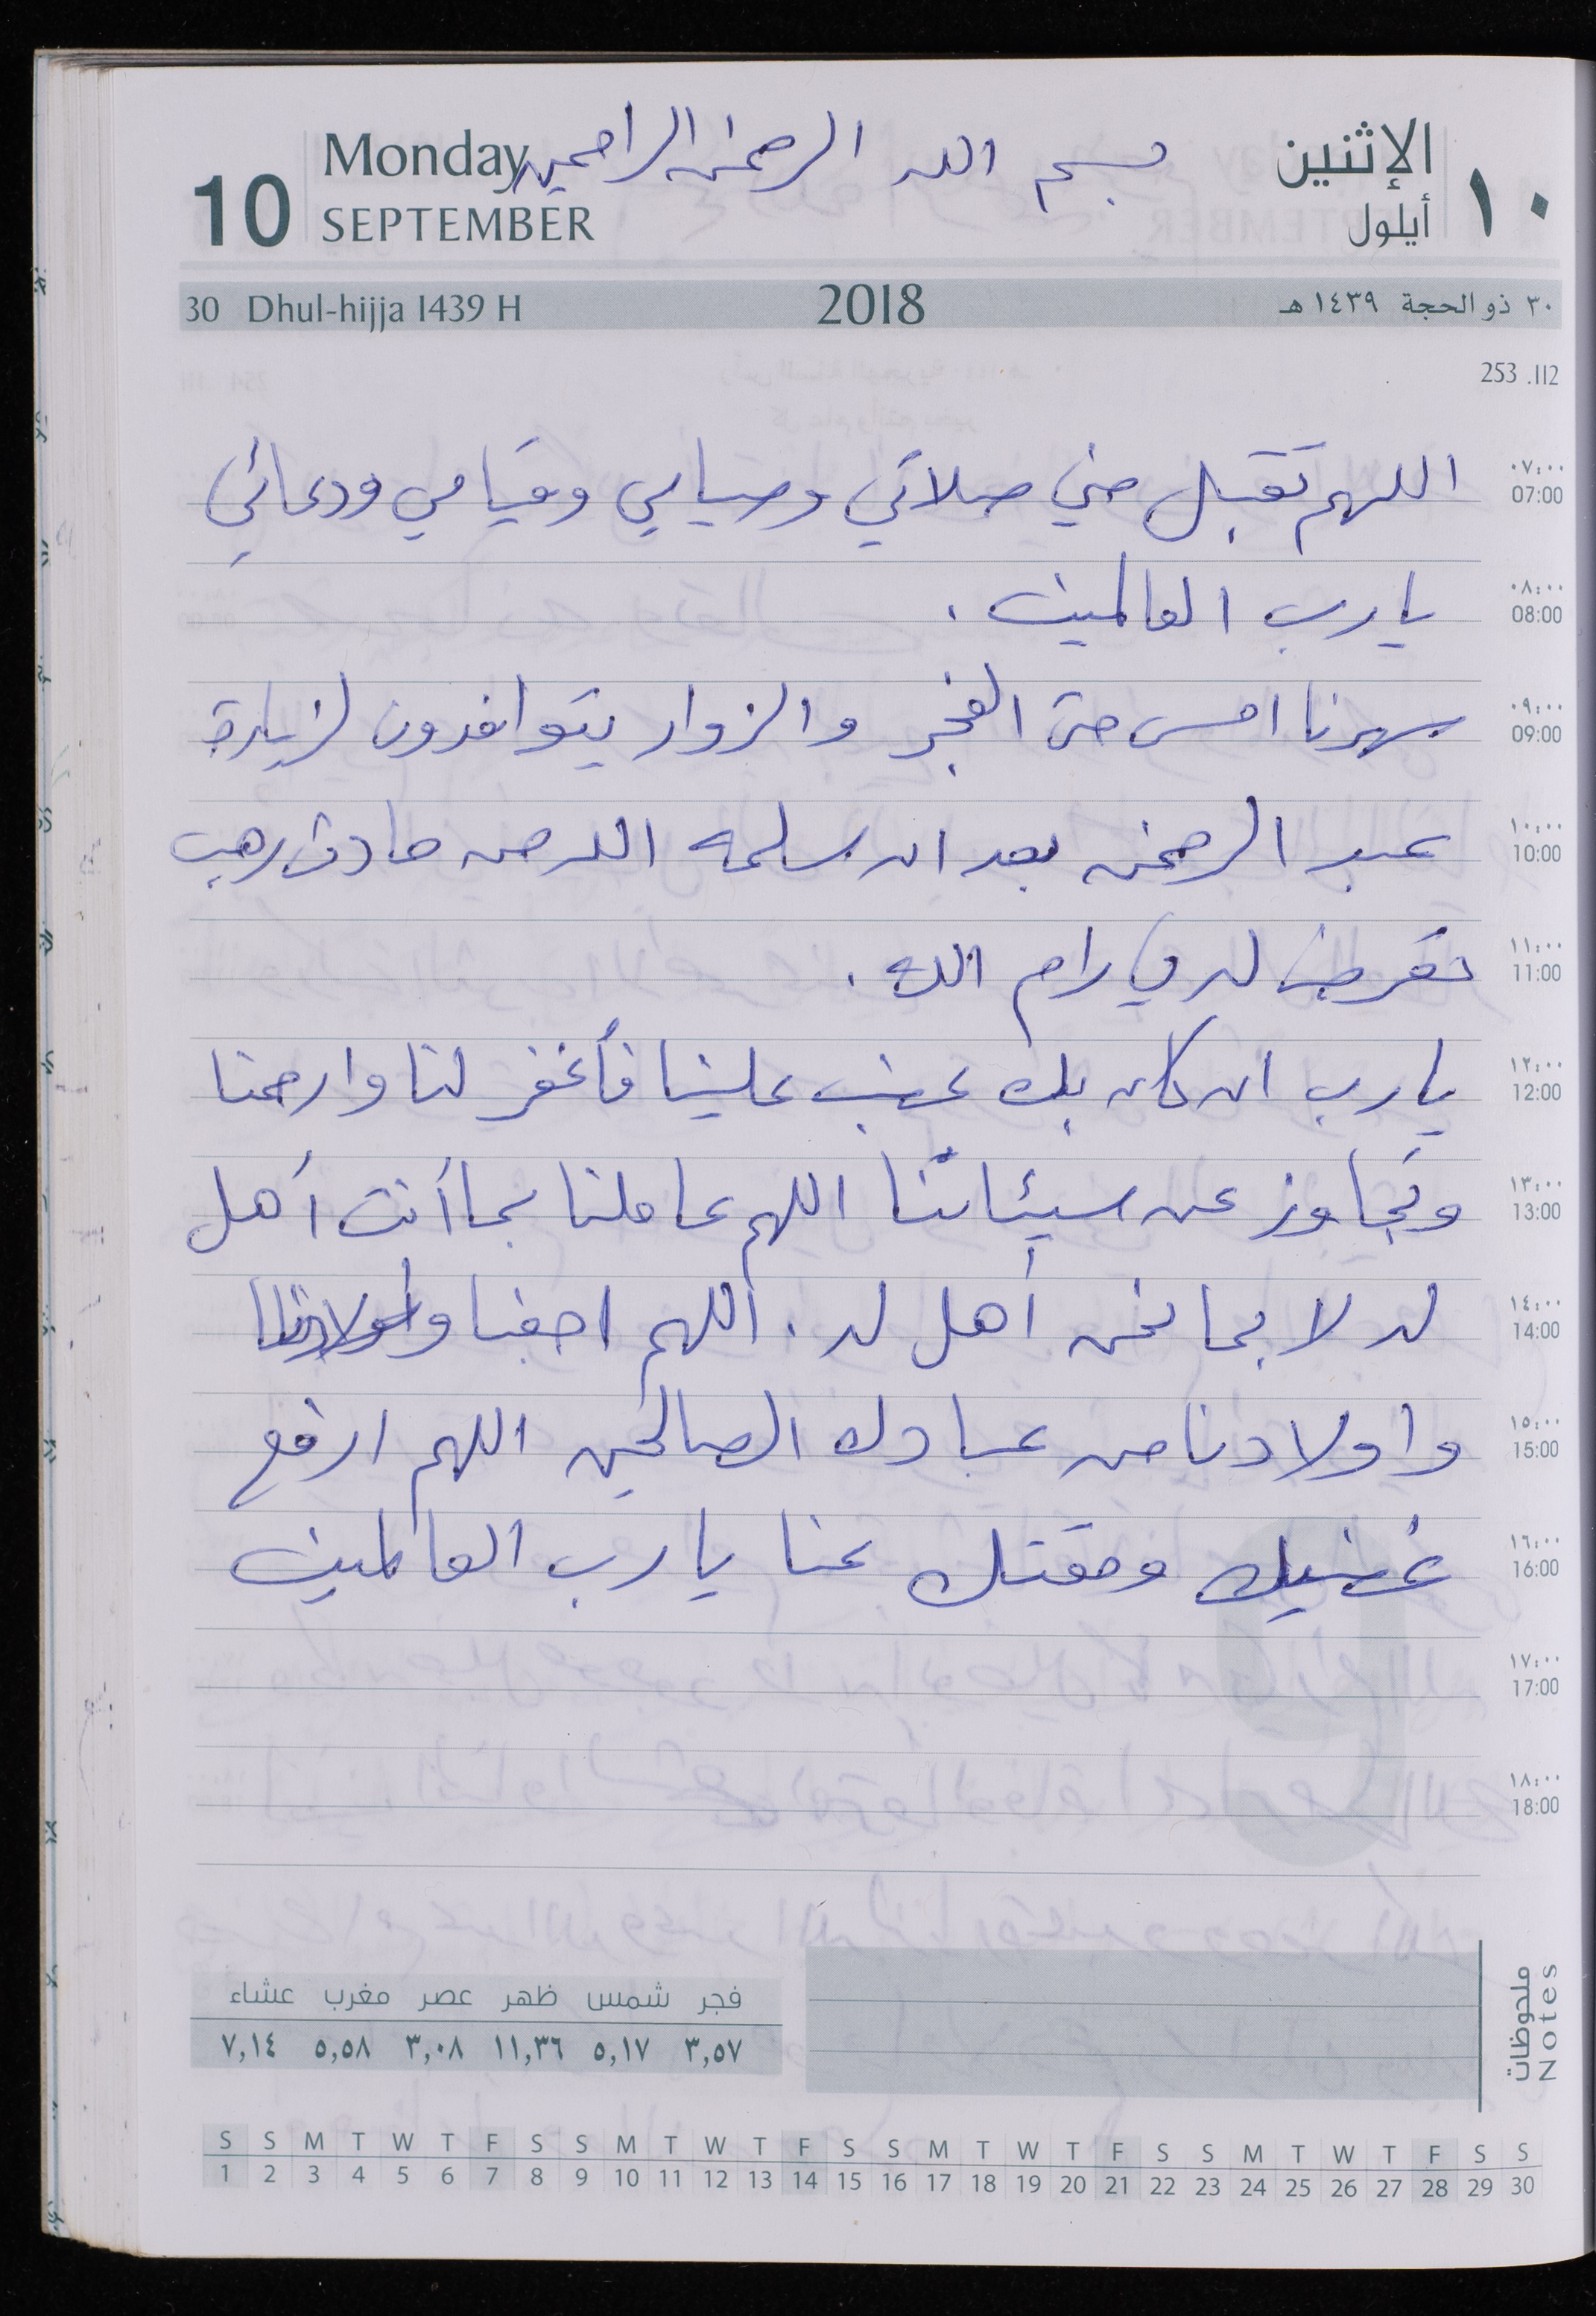 10
Monday
SEPTEMBER
بسم الله الرحمن الراحمين
الإثنين
أيلول
١٠
30 Dhul-hijja 1439 H
2018
٣٠ ذو الحجة ١٤٣٩ هـ
253 .112
اللهم تقبل مني صلاتي وصيامي وقيامي ودعائي
يارب العالمين .
سهرنا امس حتى الفجر والزوار يتوافدون لزيارة
عبد الرحمن بعد ان سلمه الله من حادث رهب
تعرض له في رام الله .
يارب ان كان بك غضب علينا فأغفر لنا وارحمنا
وتجاوز عن سيئاتنا اللهم عاملنا بما أنت أهل
له لا بما نحن أهل له . اللهم اجعلنا وأولادنا
واولادنا من عبادك الصالحين اللهم ارفع
غضبك ومقتك عنا يارب العالمين
٠٧:٠٠
07:00
٠٨:٠٠
08:00
٠٩:٠٠
09:00
١٠:٠٠
10:00
١١:٠٠
11:00
١٢:٠٠
12:00
١٣:٠٠
13:00
١٤:٠٠
14:00
١٥:٠٠
15:00
١٦:٠٠
16:00
١٧:٠٠
17:00
١٨:٠٠
18:00
ملحوظات
Notes
فجر شمس ظهر عصر مغرب عشاء
٣,٥٧ ٥,١٧ ١١,٣٦ ٣,٠٨ ٥,٥٨ ٧,١٤
S S M T W T F S S M T W T F S S M T W T F S S M T W T F S S
1 2 3 4 5 6 7 8 9 10 11 12 13 14 15 16 17 18 19 20 21 22 23 24 25 26 27 28 29 30